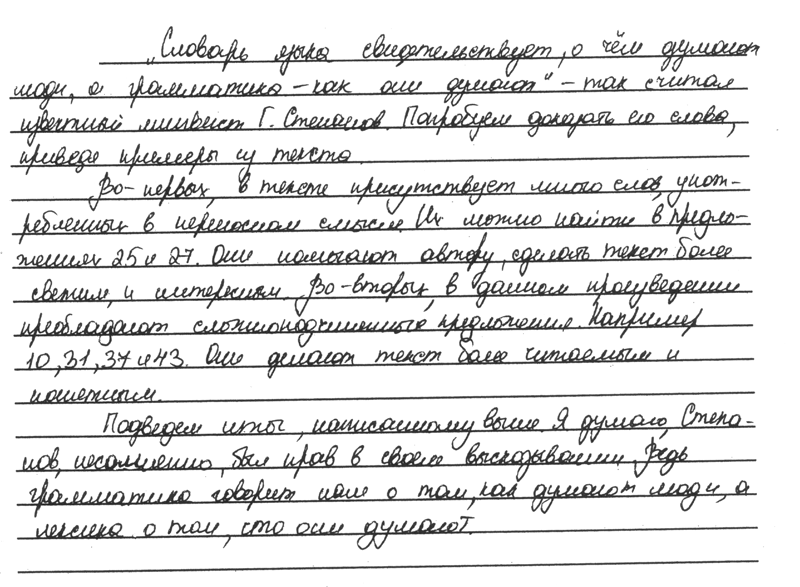 „Словарь языка свидетельствует, о чём думают
люди, а грамматика – как они думают" – так считал
известный лингвист Г. Степанов. Попробуем доказать его слова,
приведя примеры из текста.
Во-первых, в тексте присутствует много слов, упот-
ребленных в переносном смысле. Их можно найти в предло-
жениях 25 и 27. Они помагают автору, сделать текст более
светлым, и интересным. Во-вторых, в данном произведении
преобладают сложноподчиненные предложения. Например
10, 31, 37 и 43. Они делают текст более читаемым и
понятным.
Подведем итог, написанному выше. Я думаю, Степа-
нов, несомненно, был прав в своем высказывании. Ведь
грамматика говорит нам о том, как думают люди, а
лексика о том, что они думают.